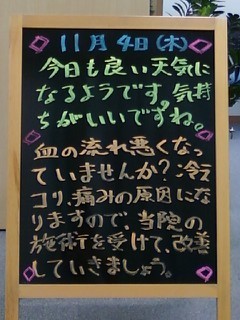 11月4日(木)
今日も良い天気に
なるようです。気持
ちがいいですね。
血の流れ悪くなっ
ていませんか?冷え
コリ、痛みの原因にな
りますので、当院の
施術を受けて、改善
していきましょう。